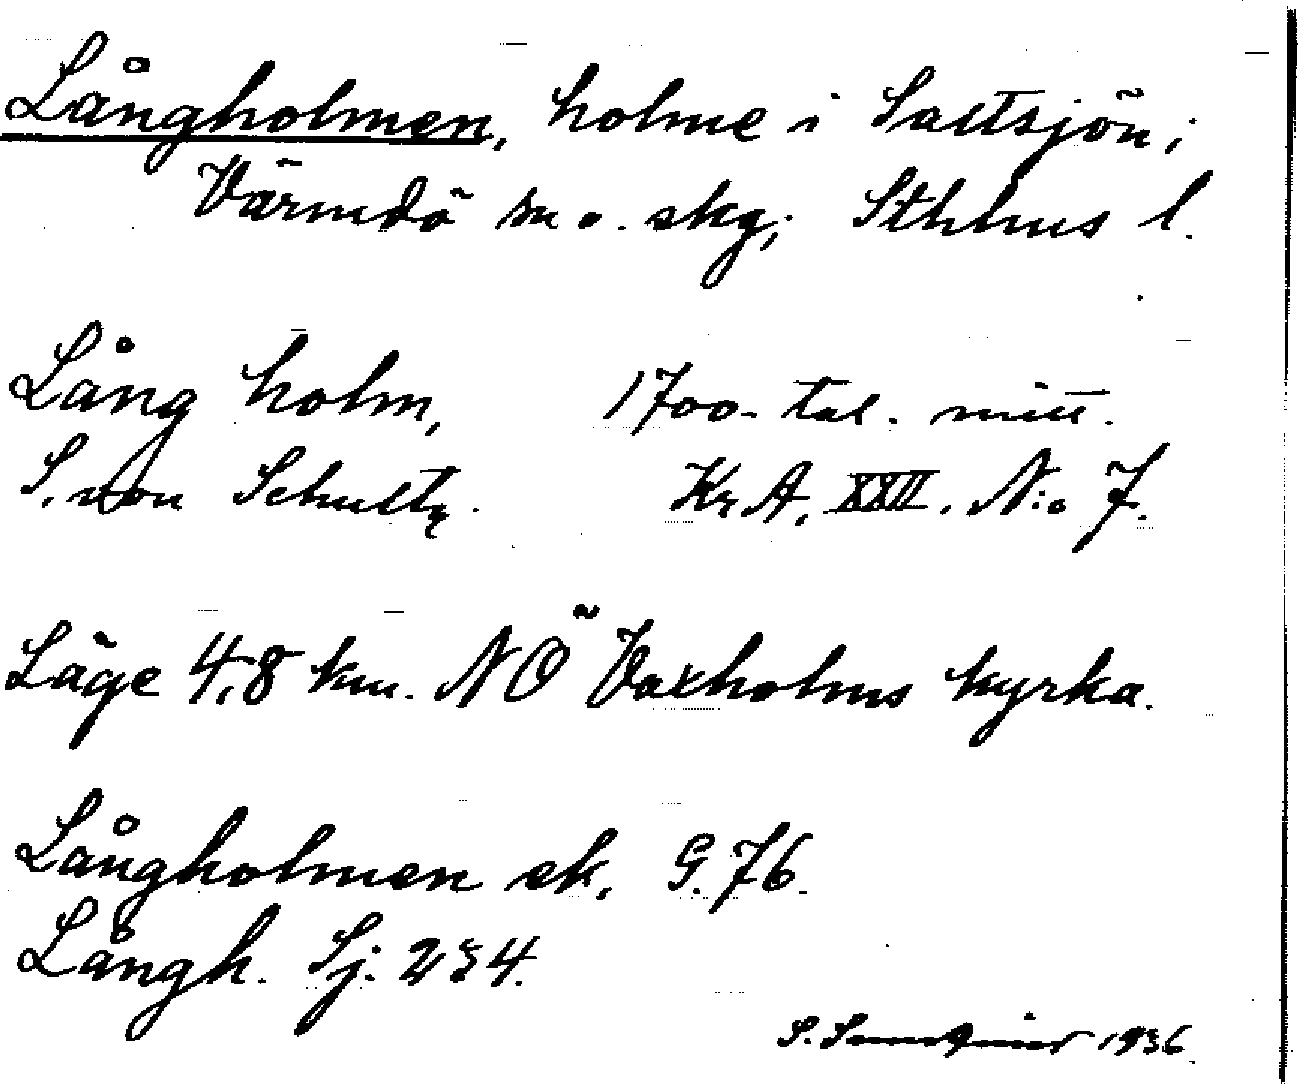 Långholmen, holme i Saltsjön;
Värmdö sn o. skg; Sthlms l.
Lång holm, 1700-tal. mitt.
S. von Schultz. Kr A. XXII. N:o 7.
Läge 4,8 km. NÖ Vaxholms kyrka.
Långholmen ek. G. 76.
Långh. Sj: 234.
S. 1936